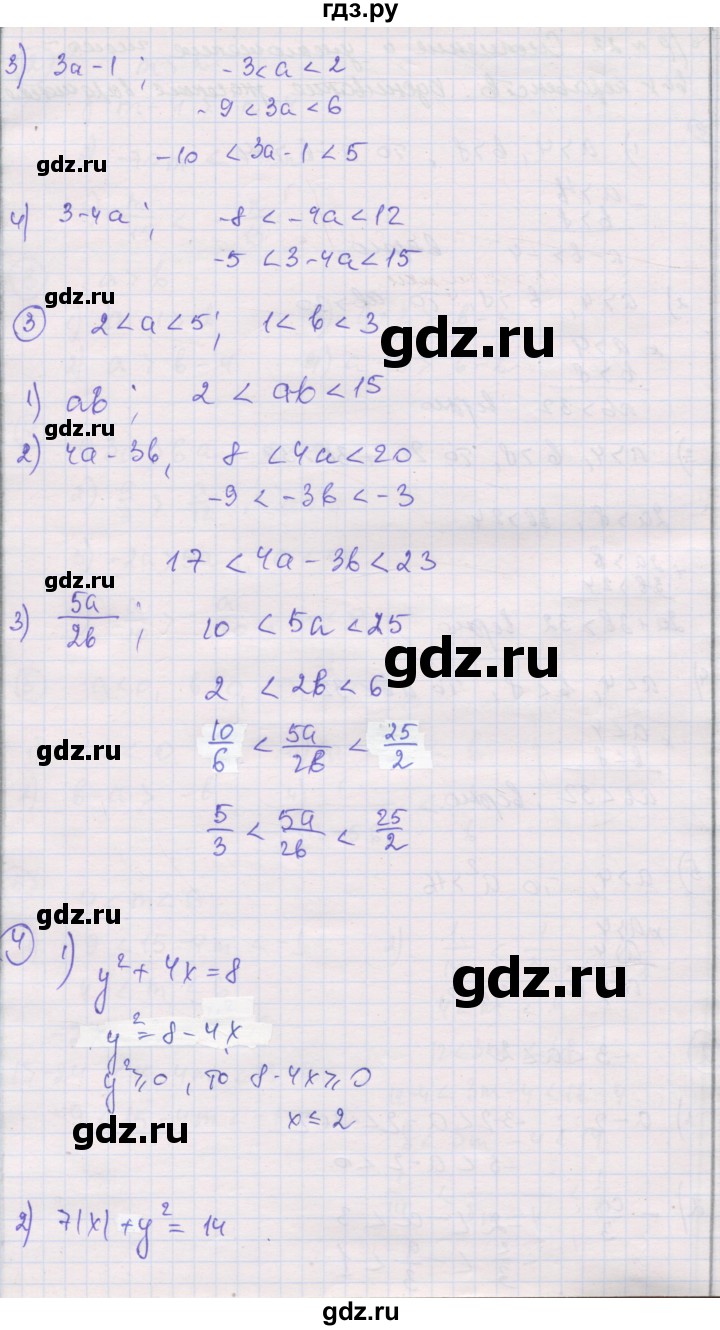 гдз.ру
3) 3a-1; -3<a<2
-9<3a<6
gdz.ru
-10<3a-1<5
4) 3-4a; -8<-4a<12
-5<3-4a<15
gdz.ru
3 2<a<5; 1<b<3
gdz.ru
1) ab; 2<ab<15
gdz.ru
2) 4a-3b, 8<4a<20
-9<-3b<-3
17<4a-3b<23
gdz.ru
3) 5a/2b; 10<5a<25
gdz.ru
2<2b<6
gdz.ru
10/6<5a/2b<25/2
5/3<5a/2b<25/2
gdz.ru
4 1) y²+4x=8
gdz.ru
y²=8-4x
y²⩾0, то 8-4x⩾0
gdz.ru
x≤2
2) 7|x|+y²=14
gdz.ru
гдз.ру